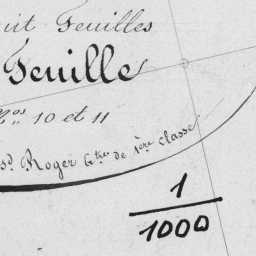 uit Feuilles
Feuille
Nos 10 et 11
sd Roger Gtre de 1ère classe
1
1000